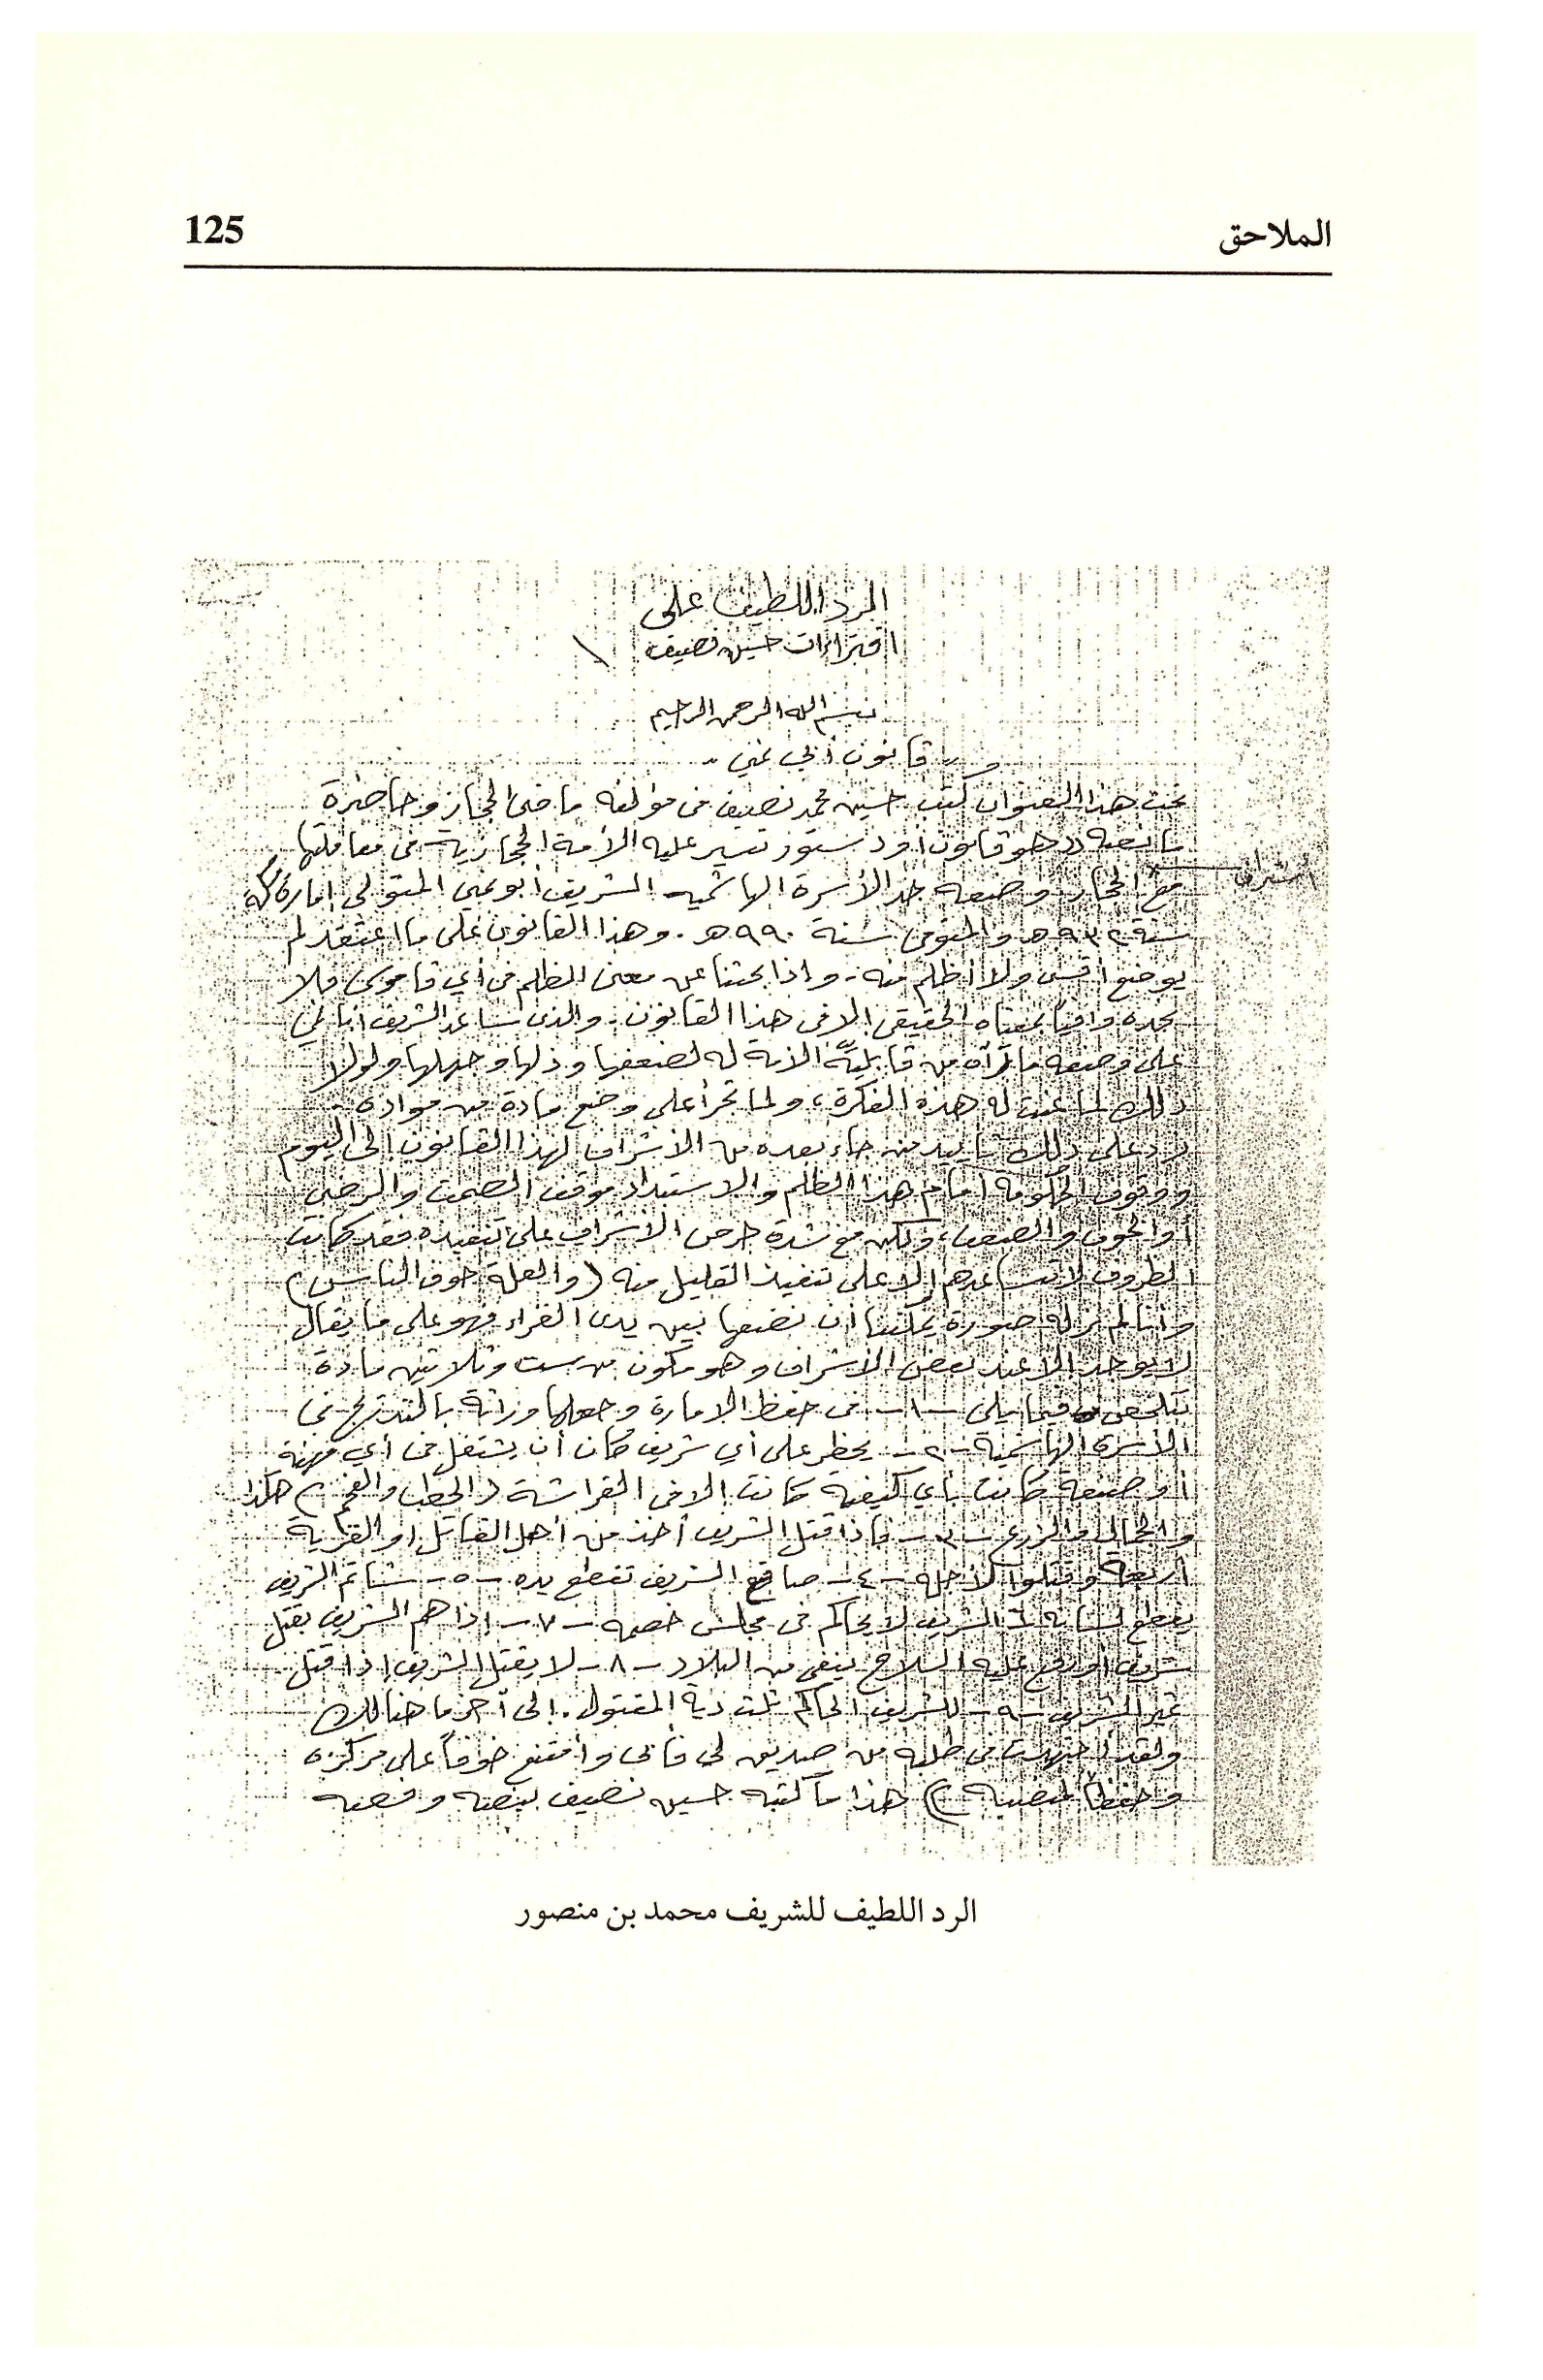 الملاحق
125
الرد اللطيف على
افتراءات حسين نصيف
بسم الله الرحمن الرحيم
قانون أبي نمي
تحت هذا العنوان كتب حسين محمد نصيف في مؤلفه ماضي الحجاز وحاضره
ما نصه (( هو قانون أو دستور تسير عليه الأمة الحجازية في معاملتها
مع الحجاز وضعه جد الأسرة الهاشمية الشريف أبو نمي المتولي إمارة مكة
أشراف
سنة ٩٣٢ هـ والمتوفى سنة ٩٩٠ هـ . وهذا القانون على ما اعتقد لم
يوضع أقسى ولا أظلم منه - واذا بحثنا عن معنى الظلم في أي قاموس فلا
نجده وافياً بمعناه الحقيقي إلا في هذا القانون - والذي ساعد الشريف أبا نمي
على وضعه ما رآه من قابلية الأمة له لضعفها وذلها وجهلها ولولا
ذلك لما عنت له هذه الفكرة ، ولما تجرأ على وضع مادة من مواده -
زد على ذلك تأييد من جاء بعده من الأشراف لهذا القانون الى اليوم
ووقوف الحكومة أمام هذا الظلم والاستبداد موقف الصمت والرضى
أو الخوف والضعف ، ولكن مع شدة حرص الأشراف على تنفيذه فقد كانت
الظروف لا تساعدهم إلا على تنفيذ القليل منه ( والعلة خوف الناس )
وأنا لم نر له صورة يمكننا أن نضعها بين يدي القراء فهو على ما يقال
لا يوجد إلا عند بعض الأشراف وهو مكون من ست وثلاثين مادة
تتلخص فيما يلي - ١ - في حفظ الامارة وجعلها وراثة بالتدريج في
الأسرة الهاشمية - ٢ - يحظر على أي شريف كان أن يشتغل في أي مهنة
أو صنعة كانت بأي كيفية كانت إلا في القراشة ( الحطب والفحم ) هكذا
والجمال والزارع - ٣ - فاذا قتل الشريف أخذ من أهل القاتل او القرية
أربعة وقتلوا لأجله - ٤ - صافع الشريف تقطع يده - ٥ - شاتم الشريف
يقطع لسانه - ٦ - الشريف لا يحاكم في مجلس خصمه - ٧ - اذا هم الشريف بقتل
شريف أو رفع عليه السلاح ينفى من البلاد - ٨ - لا يقتل الشريف اذا قتل
غير الشريف - ٩ - للشريف الحاكم ثلث دية المقتول . إلى آخر ما هنالك
ولقد اجتهدت في طلبه من صديق لي فأبى وامتنع خوفاً على مركزه
وحفظاً لمنصبه )) هذا ما كتبه حسين نصيف بنصه وفصه
الرد اللطيف للشريف محمد بن منصور